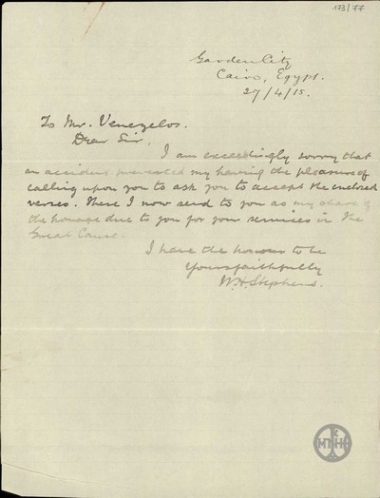 173/77
Garden City
Cairo, Egypt.
27/4/15.
To Mr. Venezelos.
Dear Sir,
I am exceedingly sorry that
an accident prevented my having the pleasure of
calling upon you to ask you to accept the enclosed
verses. These I now send to you as my share of
the homage due to you for your services in the
Great Cause.
I have the honour to be
Yours faithfully
W.H. Stephens.